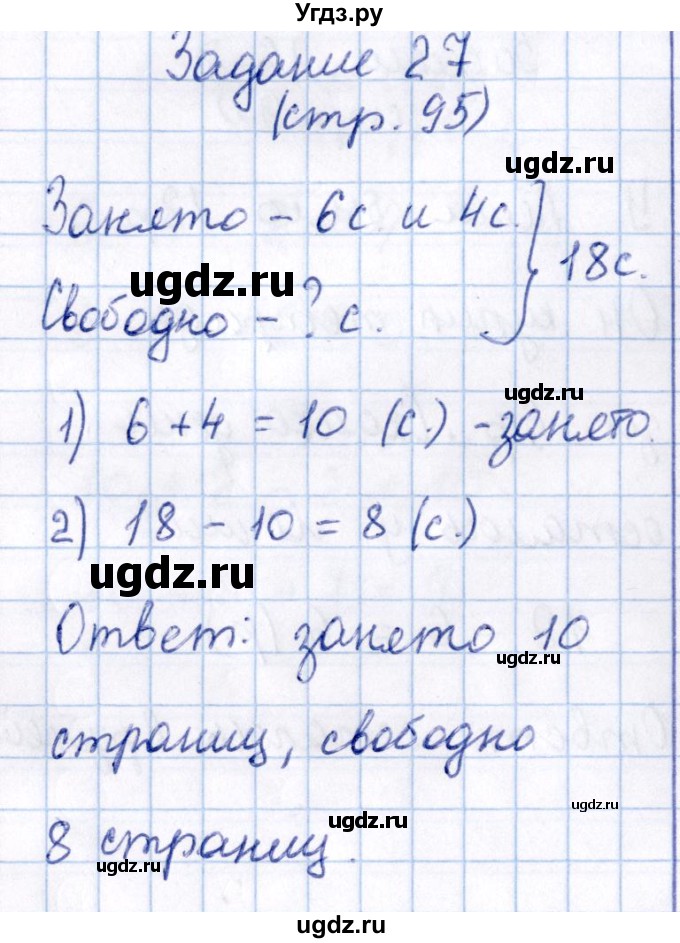 Угдз.ру
Задание 27
(стр. 95)
ugdz.ru
Занято – 6с и 4с. } 18с.
ugdz.ru
Свободно – ? с.
ugdz.ru
1) 6 + 4 = 10 (с.) – занято.
2) 18 – 10 = 8 (с.)
ugdz.ru
Ответ: занято 10
ugdz.ru
страниц, свободно
ugdz.ru
ugdz.ru
8 страниц.
ugdz.ru
ugdz.ru